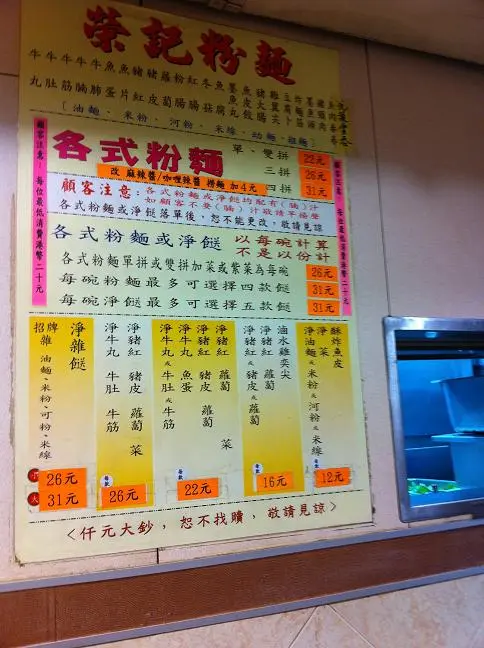 榮記粉麵
牛丸
牛肚
牛筋
牛腩
牛肺
魚蛋
魚片
豬紅
豬皮
蘿蔔
粉腸
紅腸
冬菇
魚腐
墨魚丸
魚皮餃
〔油麵、米粉、河粉、米線、幼麵、粗麵〕
各式粉麵
單、雙拼 22元
三拼 26元
四拼 31元
改 麻辣醬/咖喱辣醬 撈麵 加4元
顧客注意：各式粉麵或淨餸均配有(腩)汁
如顧客不要(腩)汁敬請早揚聲
各式粉麵或淨餸落單後，恕不能更改，敬請見諒
顧客注意！每位最低消費港幣二十元
顧客注意！每位最低消費港幣二十元
各式粉麵或淨餸 以每碗計算 不是以份計
各式粉麵單拼或雙拼加菜或紫菜為每碗 26元
每碗粉麵最多可選擇四款餸 31元
每碗淨餸最多可選擇五款餸 31元
淨雜餸
招牌雜 油麵、米粉、河粉、米線
26元
大 31元
淨牛丸 牛肚 牛筋
淨豬紅 豬皮 蘿蔔 菜
每款 26元
淨牛丸或牛肚或牛筋
淨牛丸 魚蛋
淨豬紅 豬皮 蘿蔔
淨豬紅 蘿蔔 菜
每款 22元
淨豬紅或豬皮或蘿蔔
淨豬紅 蘿蔔
滷水雞奕尖
每款 16元
淨油麵或米粉或河粉或米線
淨菜
酥炸魚皮
每款 12元
<仟元大鈔，恕不找贖，敬請見諒>